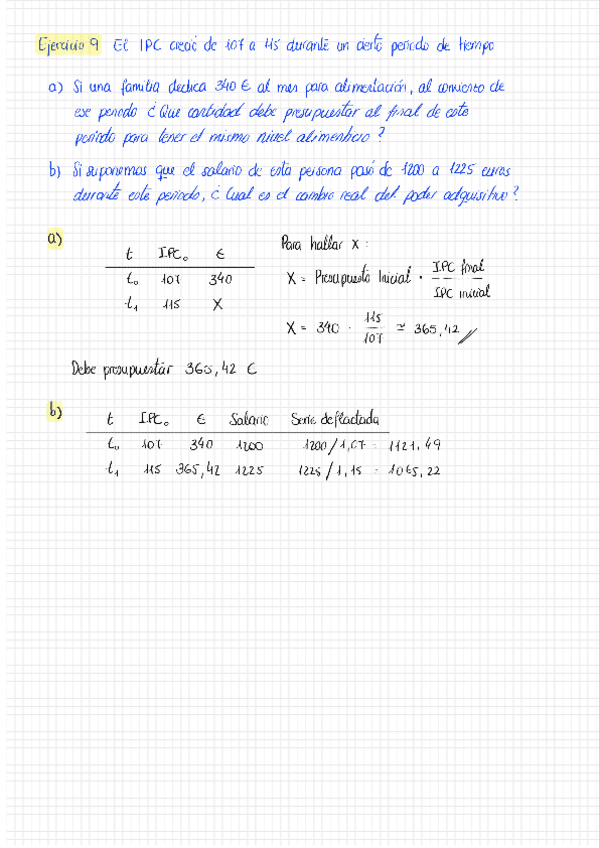 Ejercicio 9 El IPC creció de 107 a 115 durante un cierto periodo de tiempo
a) Si una familia dedica 340 € al mes para alimentación, al comienzo de
ese periodo ¿Que cantidad debe presupuestar al final de este
periodo para tener el mismo nivel alimenticio?
b) Si suponemos que el salario de esta persona pasó de 1200 a 1225 euros
durante este periodo, ¿Cual es el cambio real del poder adquisitivo?
a)
t IPC₀ €
t₀ 107 340
t₁ 115 X
Para hallar X:
X = Presupuesto Inicial · IPC final / IPC inicial
X = 340 · 115/107 ≃ 365,42 //
Debe presupuestar 365,42 €
b)
t IPC₀ € Salario Serie deflactada
t₀ 107 340 1200 1200/1,07 = 1121,49
t₁ 115 365,42 1225 1225/1,15 = 1065,22